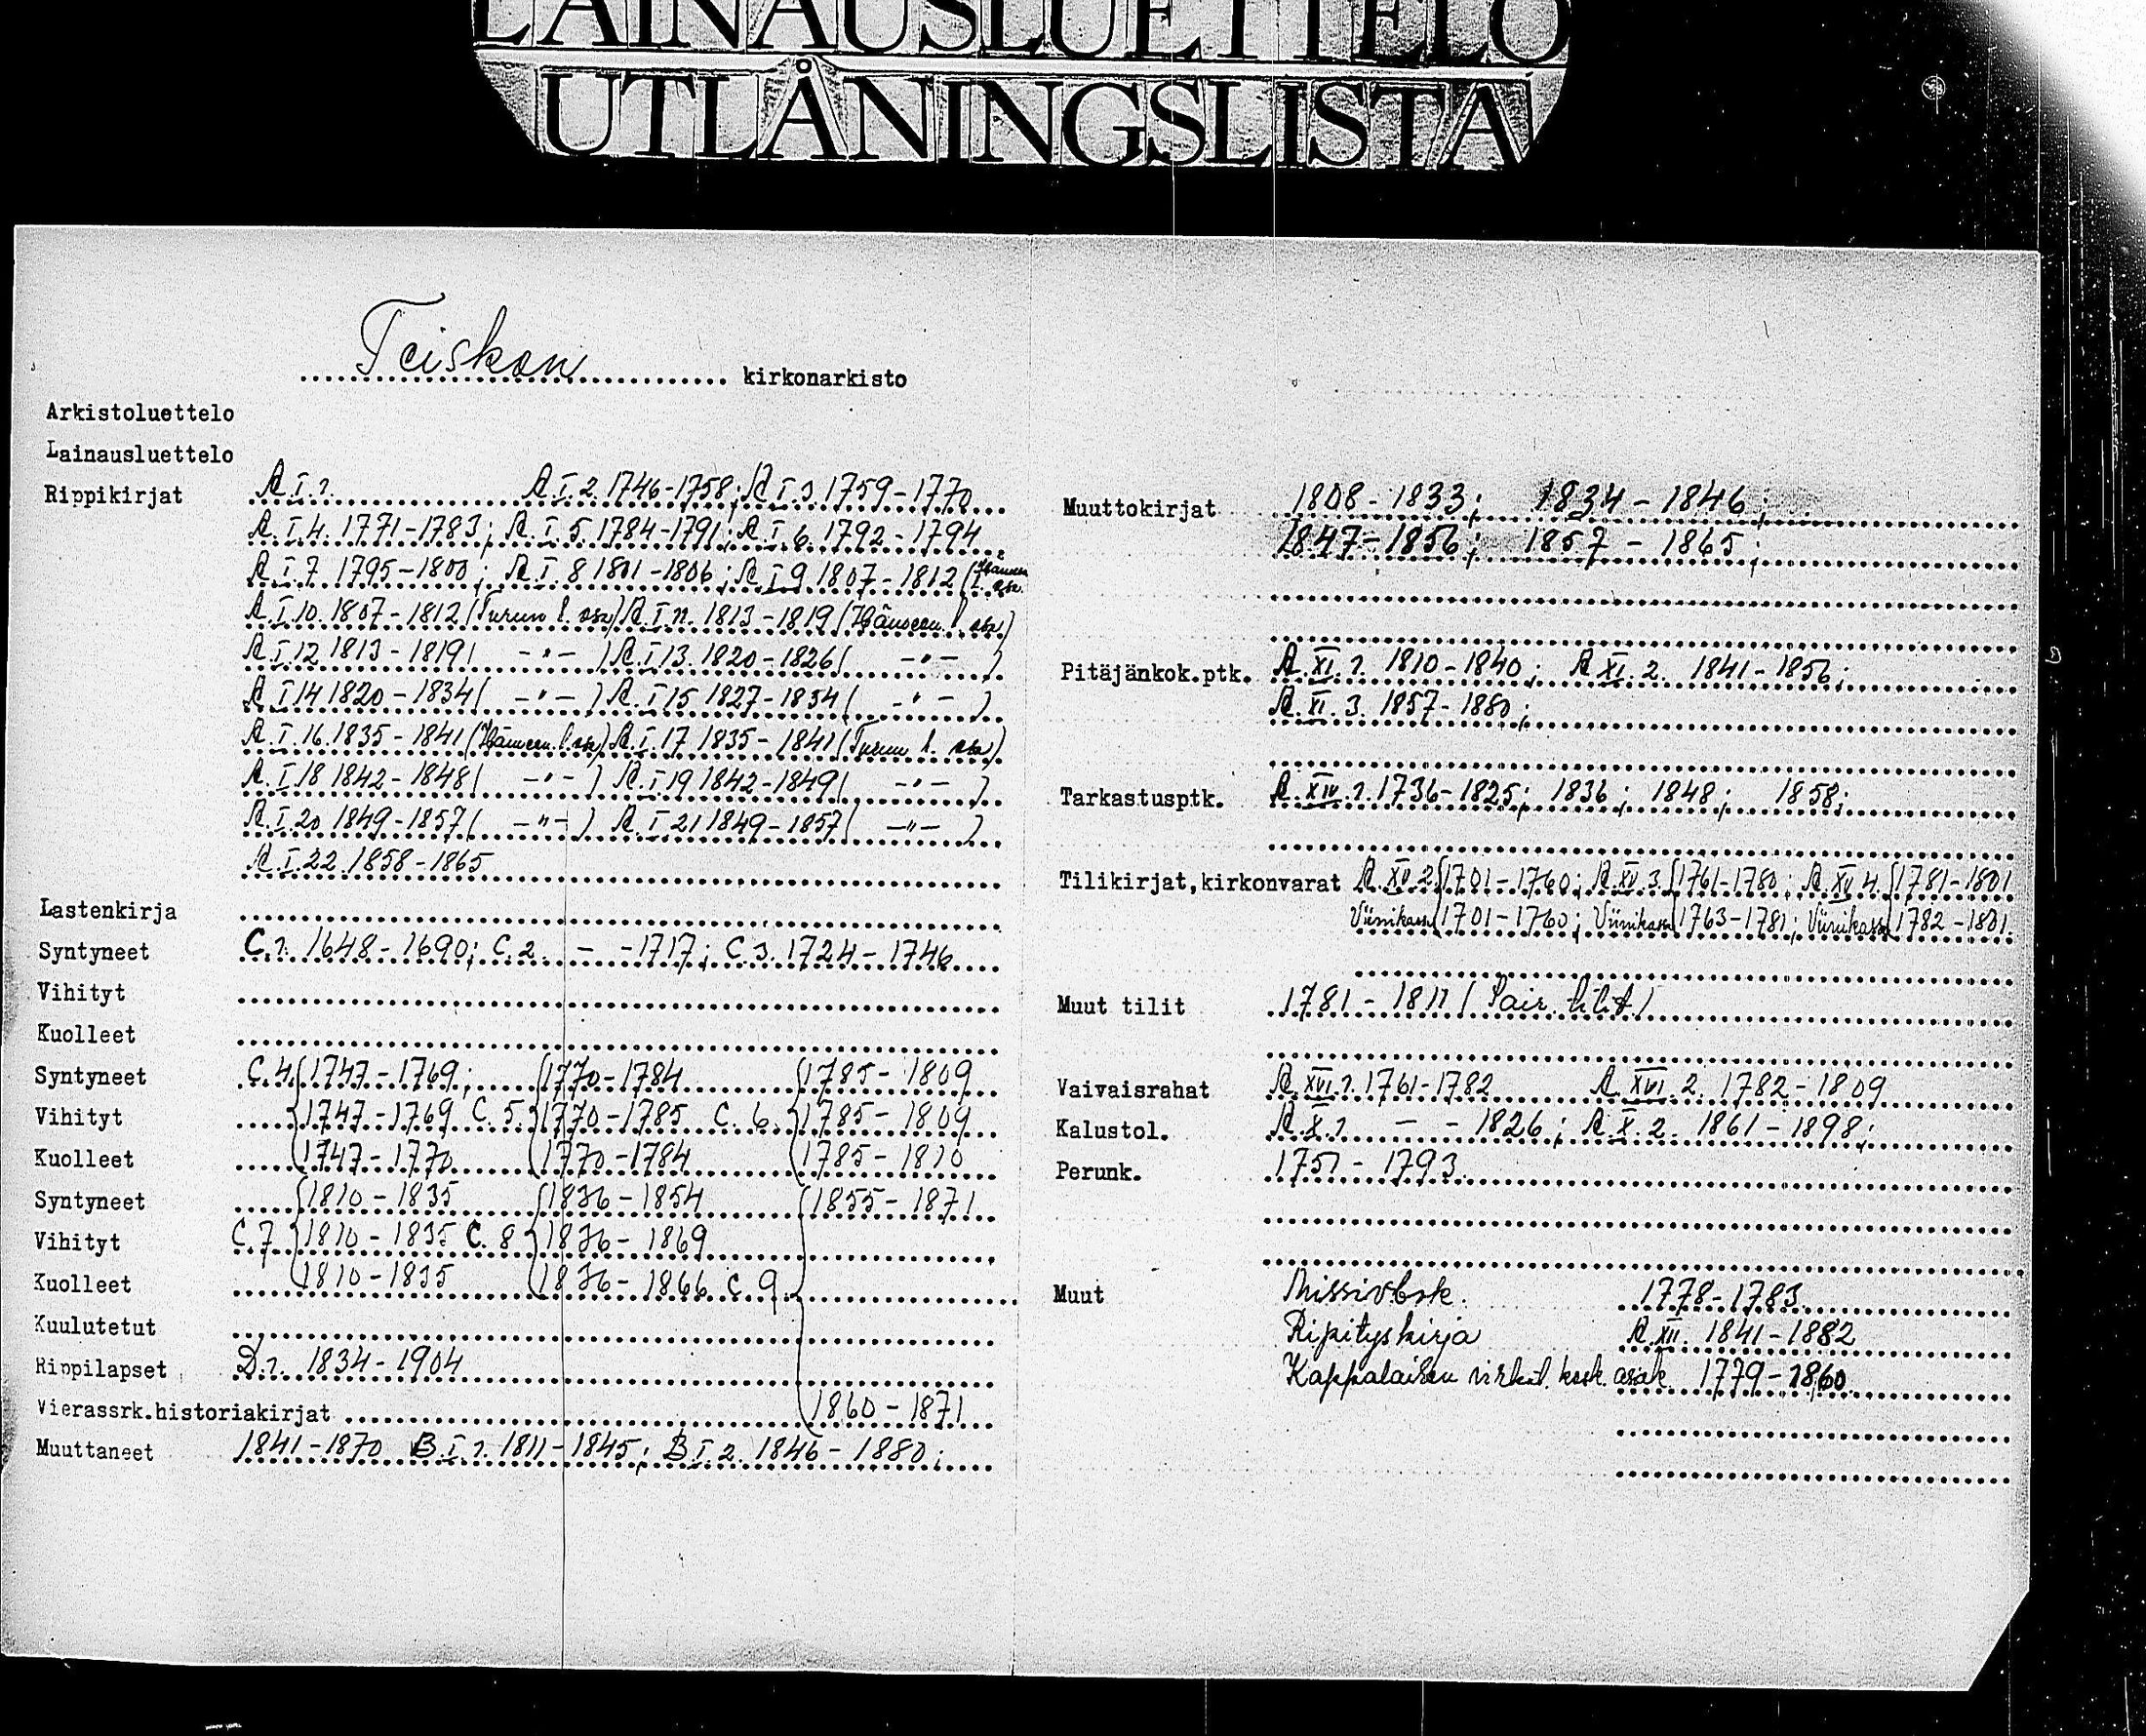 LAINAUSLUETTELO
UTLÅNINGSLISTA
Teiskon kirkonarkisto
Arkistoluettelo
Lainausluettelo
Rippikirjat A.I.1. A.I.2. 1746-1758; A.I.3. 1759-1770
A.I.4. 1771-1783; A.I.5. 1784-1791; A.I.6. 1792-1794
A.I.7. 1795-1800; A.I.8 1801-1806; A.I.9 1807-1812 (Hämeen l. osa
A.I.10. 1807-1812 (Turun l. osa) A.I.11. 1813-1819 (Hämeen l. osa)
A.I.12 1813-1819 ( -"- ) A.I.13. 1820-1826 ( -"- )
A.I.14 1820-1834 ( -"- ) A.I.15 1827-1834 ( -"- )
A.I.16. 1835-1841 (Hämeen l. osa) A.I.17 1835-1841 (Turun l. osa)
A.I.18 1842-1848 ( -"- ) A.I.19 1842-1849 ( -"- )
A.I.20 1849-1857 ( -"- ) A.I.21 1849-1857 ( -"- )
A.I.22. 1858-1865
Lastenkirja
Syntyneet C.1. 1648-1690; C.2. - -1717; C.3. 1724-1746
Vihityt
Kuolleet
Syntyneet C.4. 1747-1769; 1770-1784 1785-1809
Vihityt 1747-1769 C.5. 1770-1785 C.6. 1785-1809
Kuolleet 1747-1770 1770-1784 1785-1810
Syntyneet 1810-1835 1836-1854 1855-1871
Vihityt C.7 1810-1835 C.8 1836-1869
Kuolleet 1810-1835 1836-1866 C.9
Kuulutetut
Rippilapset D.1. 1834-1904
Vierassrk.historiakirjat 1860-1871
Muuttaneet 1841-1870 B.I.1. 1811-1845; B.I.2. 1846-1880;
Muuttokirjat 1808-1833; 1834-1846;
1847-1856; 1857-1865;
Pitäjänkok.ptk. A.XI.1. 1810-1840; A.XI.2. 1841-1856;
A.XI.3. 1857-1880;
Tarkastusptk. A.XIV.1. 1736-1825; 1836; 1848; 1858;
Tilikirjat,kirkonvarat A.XV.2. 1701-1760; A.XV.3. 1761-1780; A.XV.4. 1781-1801
Viinikassa 1701-1760; Viinikassa 1763-1781; Viinikassa 1782-1801.
Muut tilit 1781-1811 (Sair. tilit)
Vaivaisrahat A.XVI.1. 1761-1782 A.XVI.2. 1782-1809
Kalustol. A.X.1 - - 1826; A.X.2. 1861-1898;
Perunk. 1751-1793
Muut Missivbok. 1778-1783
Ripityskirja A.XII. 1841-1882
Kappalaisen virkat. kosk. asiak. 1779-1860